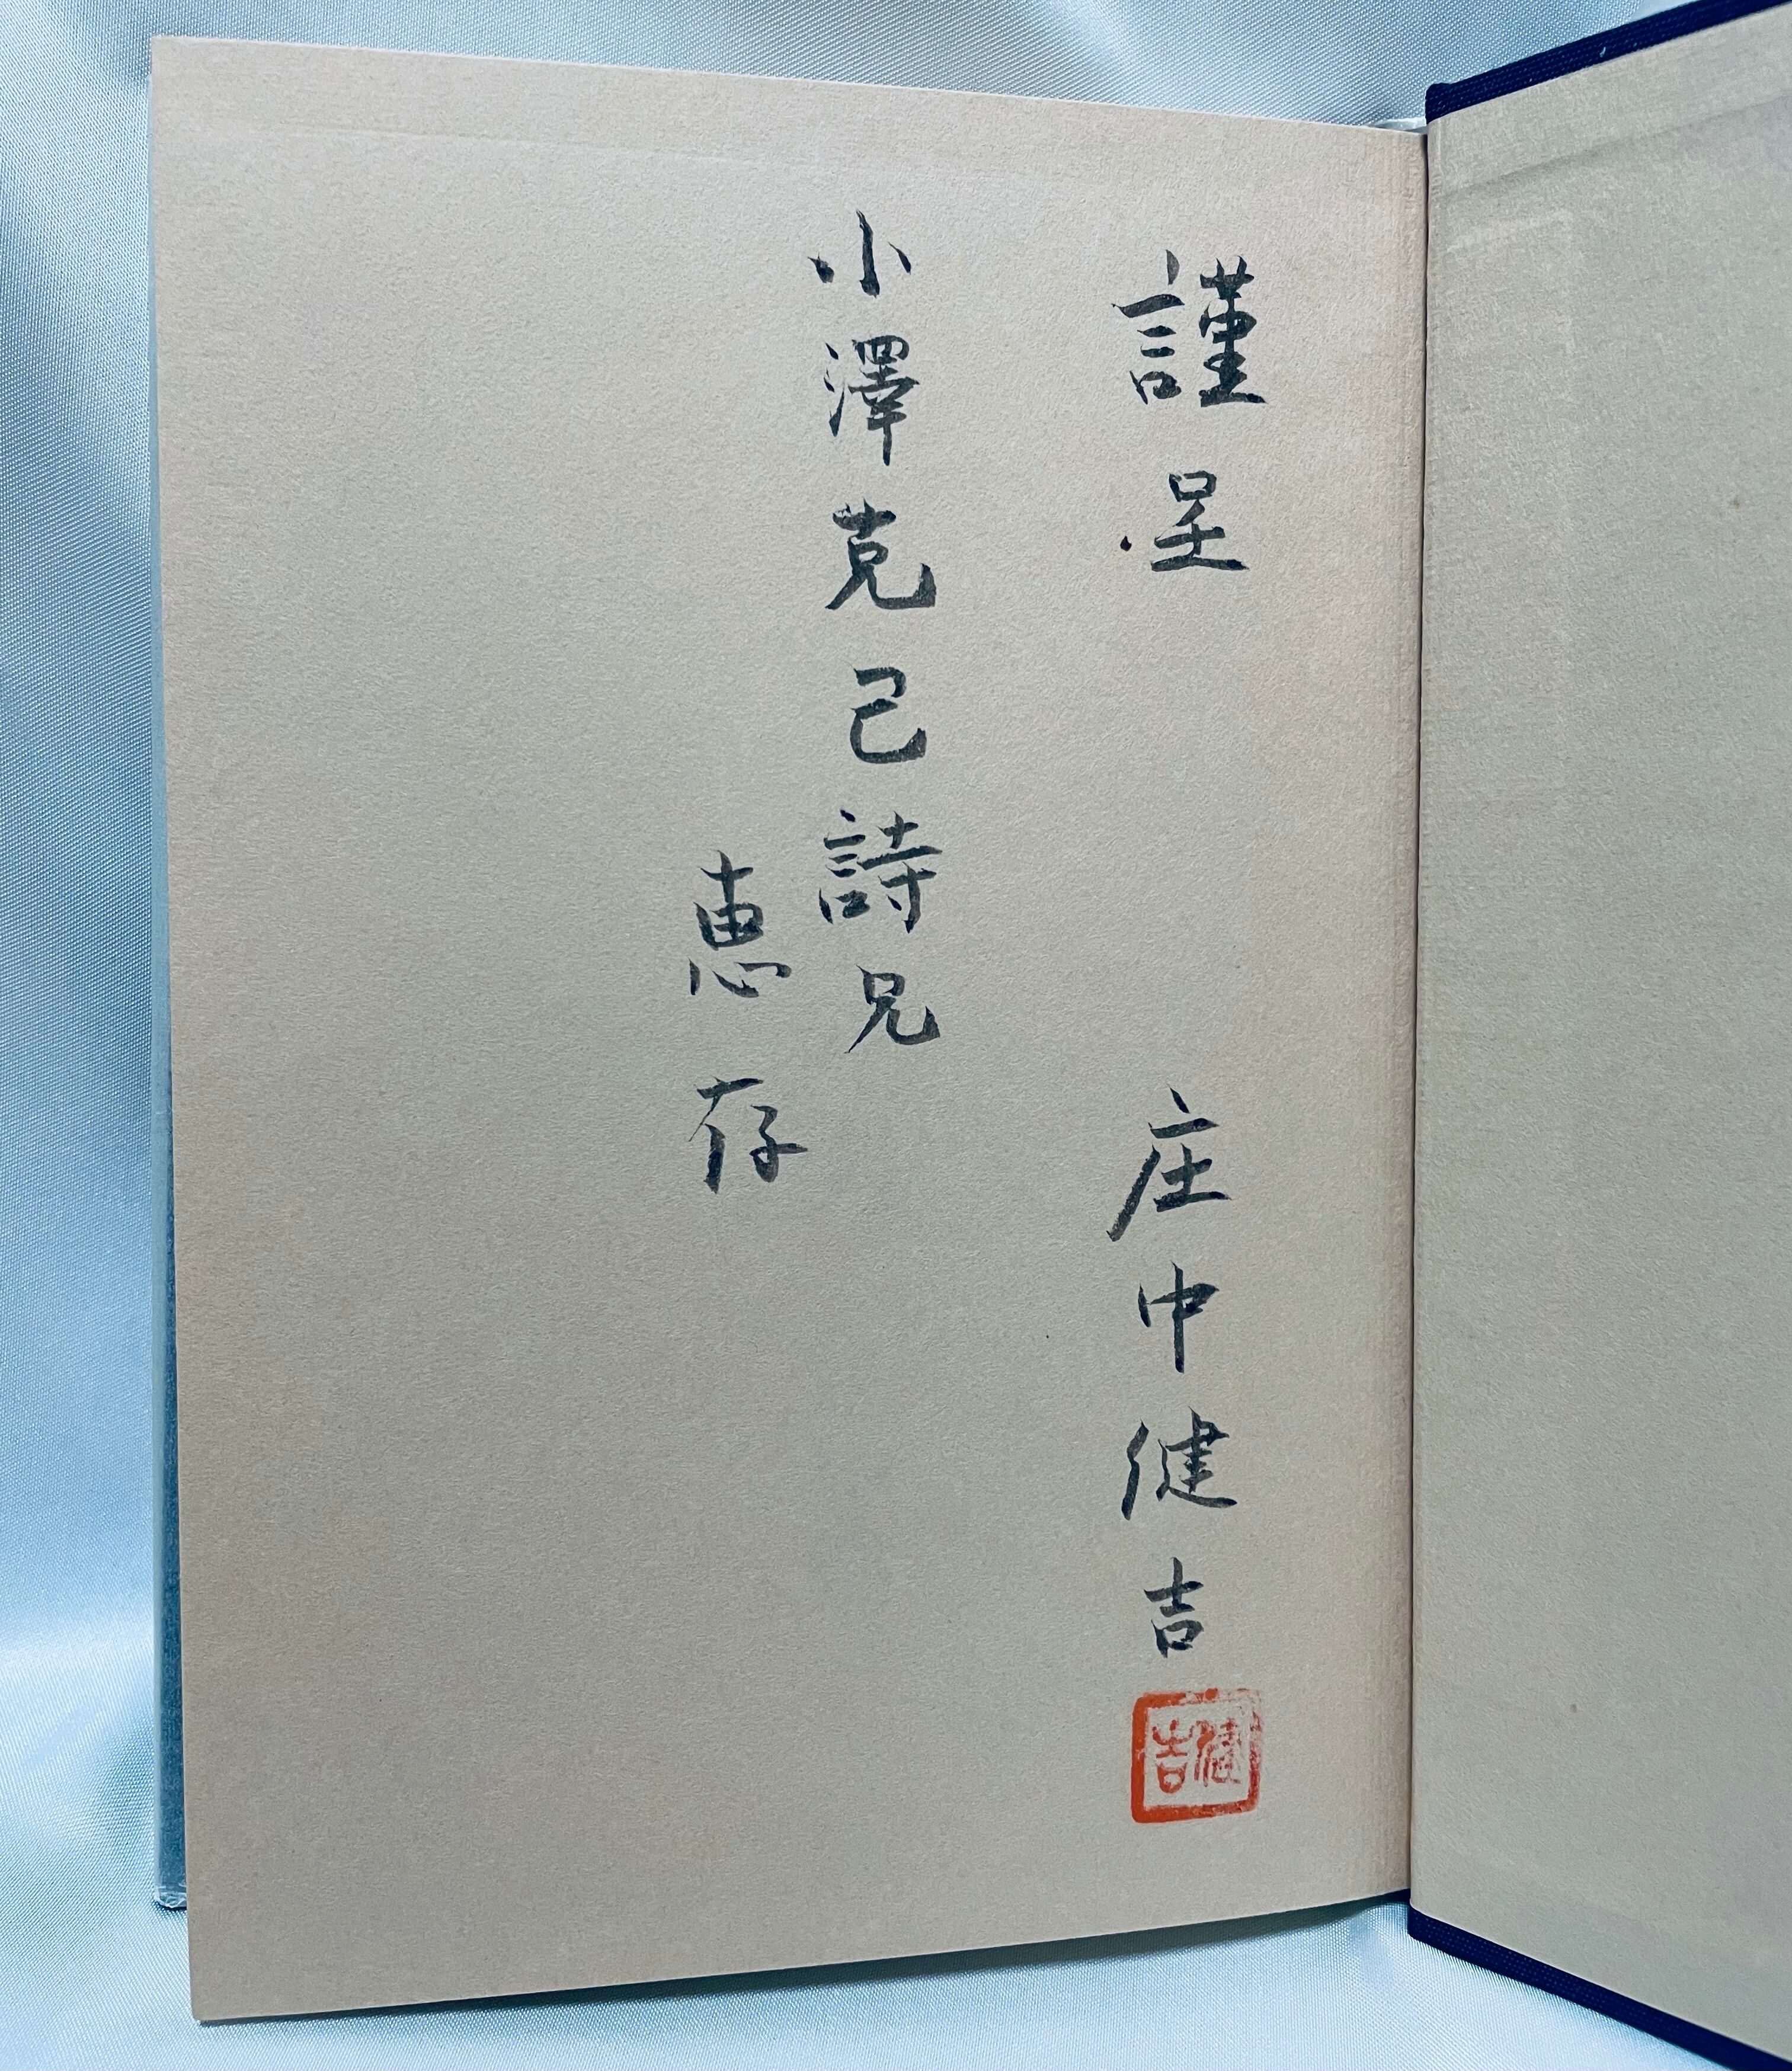 謹呈 庄中健吉
健吉
小澤克己詩兄
恵存